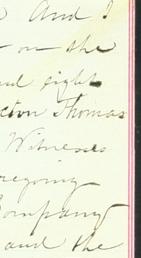 And I
on the
and eight
cton Thomas
Witnesses
regoing
Company
and the